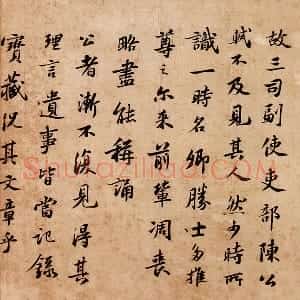 故三司副使吏部陳公
軾不及見其人然少時所
識一時名卿勝士多推
尊之尔来前輩凋喪
略盡能稱誦
公者漸不復見得其
理言遺事皆當記録
寶藏況其文章乎
Shufaziliao.com